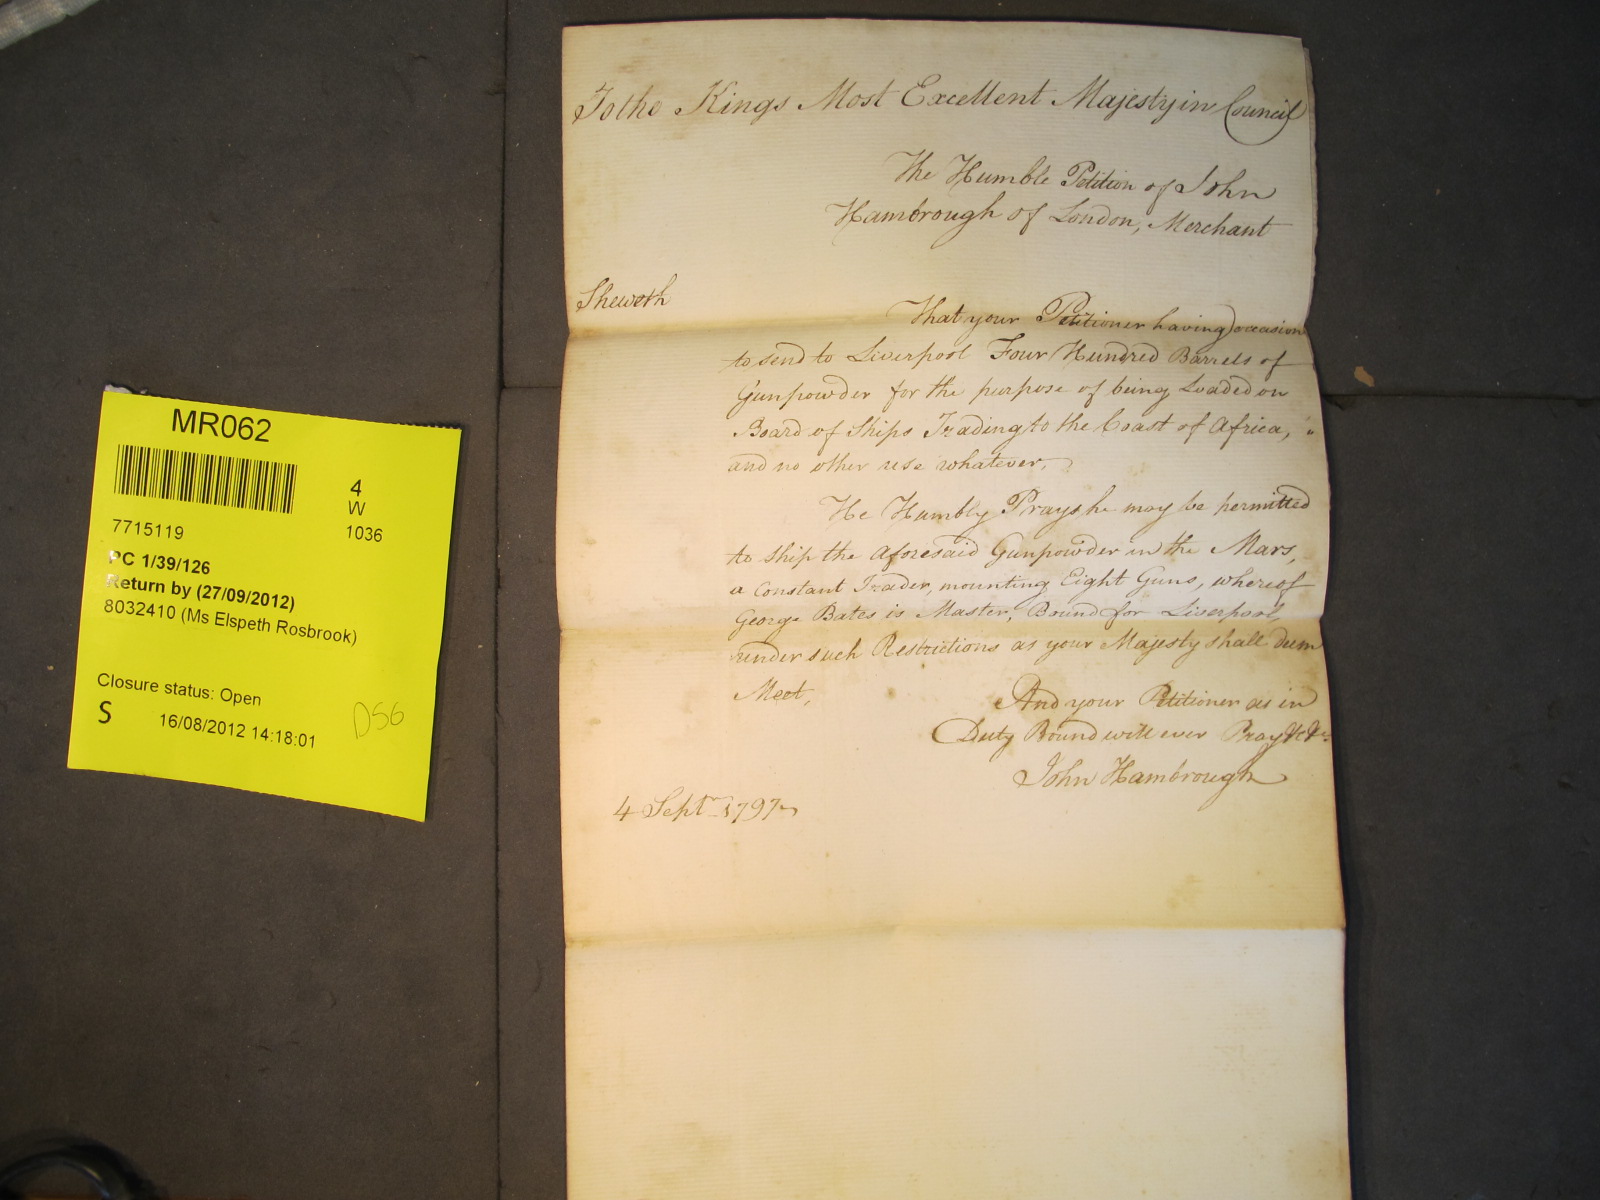 To the Kings Most Excellent Majesty in Council
The Humble Petition of John
Hambrough of London, Merchant
Sheweth
That your Petitioner having occasion
to send to Liverpool Four Hundred Barrels of
Gunpowder for the purpose of being Loaded on
Board of Ships Trading to the Coast of Africa,
and no other use whatever,
He Humbly Prays he may be permitted
to Ship the Aforesaid Gunpowder in the Mars,
a Constant Trader, mounting Eight Guns, whereof
George Bates is Master, Bound for Liverpool,
under such Restrictions as your Majesty shall deem
Meet,
And your Petitioner as in
Duty Bound will ever Pray &c &c
John Hambrough
4 Septr. 1797
MR062
4
W
7715119
1036
PC 1/39/126
Return by (27/09/2012)
8032410 (Ms Elspeth Rosbrook)
Closure status: Open
S
16/08/2012 14:18:01
DS6